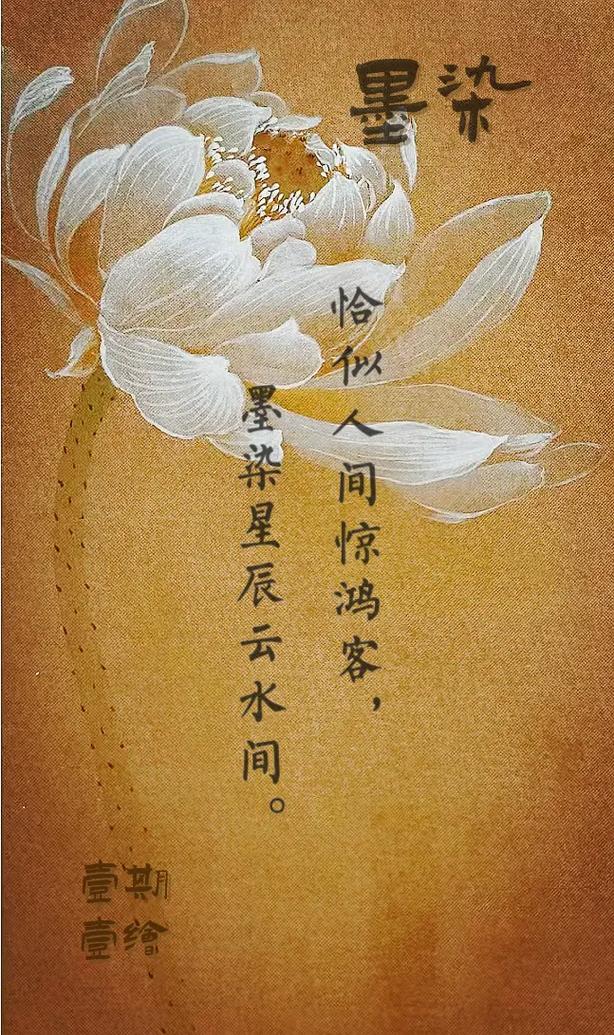 墨染
恰似人间惊鸿客，
墨染星辰云水间。
壹期
壹繪